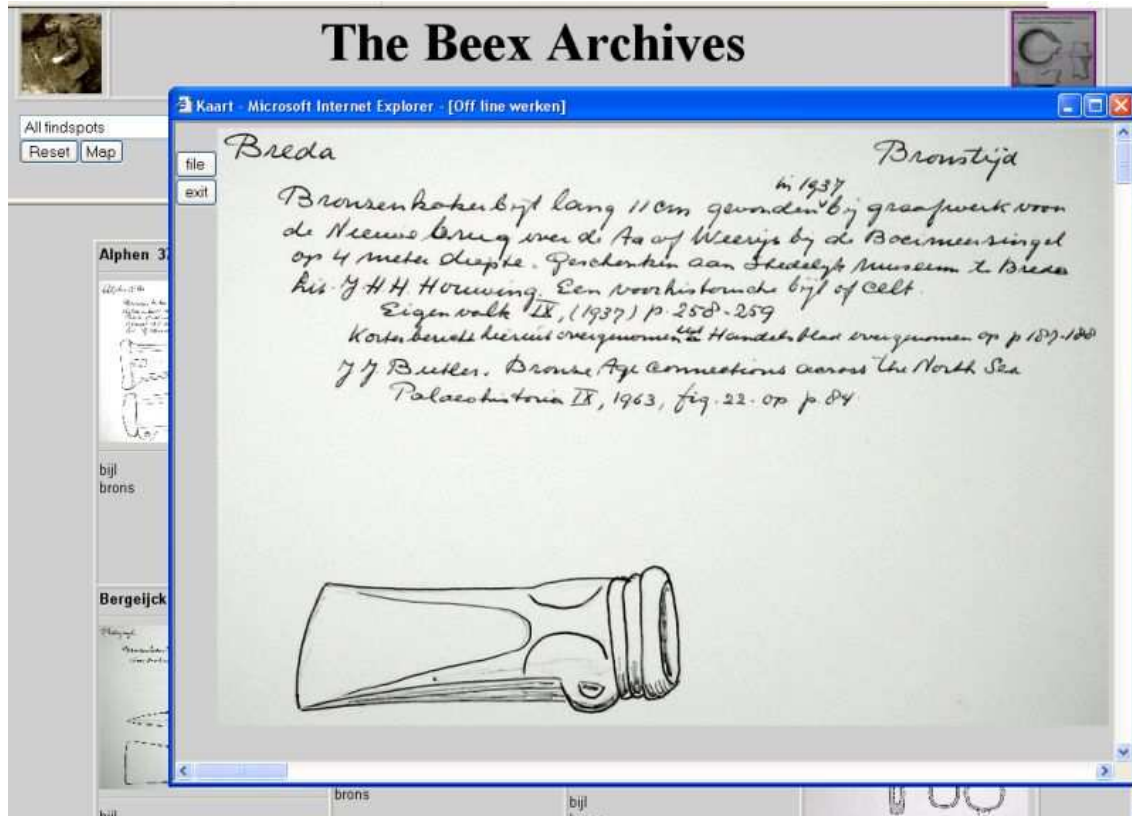 The Beex Archives
Kaart - Microsoft Internet Explorer - [Off line werken]
All findspots
Reset Map
file
exit
Breda Bronstijd
in 1937
Bronzen kokerbijl lang 11 cm gevonden bij graafwerk voor
de Nieuwe brug over de Aa of Weerijs bij de Boeimeersingel
op 4 meter diepte. Geschonken aan Stedelijk Museum te Breda
J H H Houwing. Een voorhistorische bijl of celt.
Eigen volk IX, (1937) p. 258-259
bericht hieruit overgenomen Handelsblad overgenomen op p 187-188
J J Butler. Bronze Age connections across the North Sea
Palaeohistoria IX, 1963, fig. 22. op p. 84
Alphen
bijl
brons
Bergeijck
brons
bijl